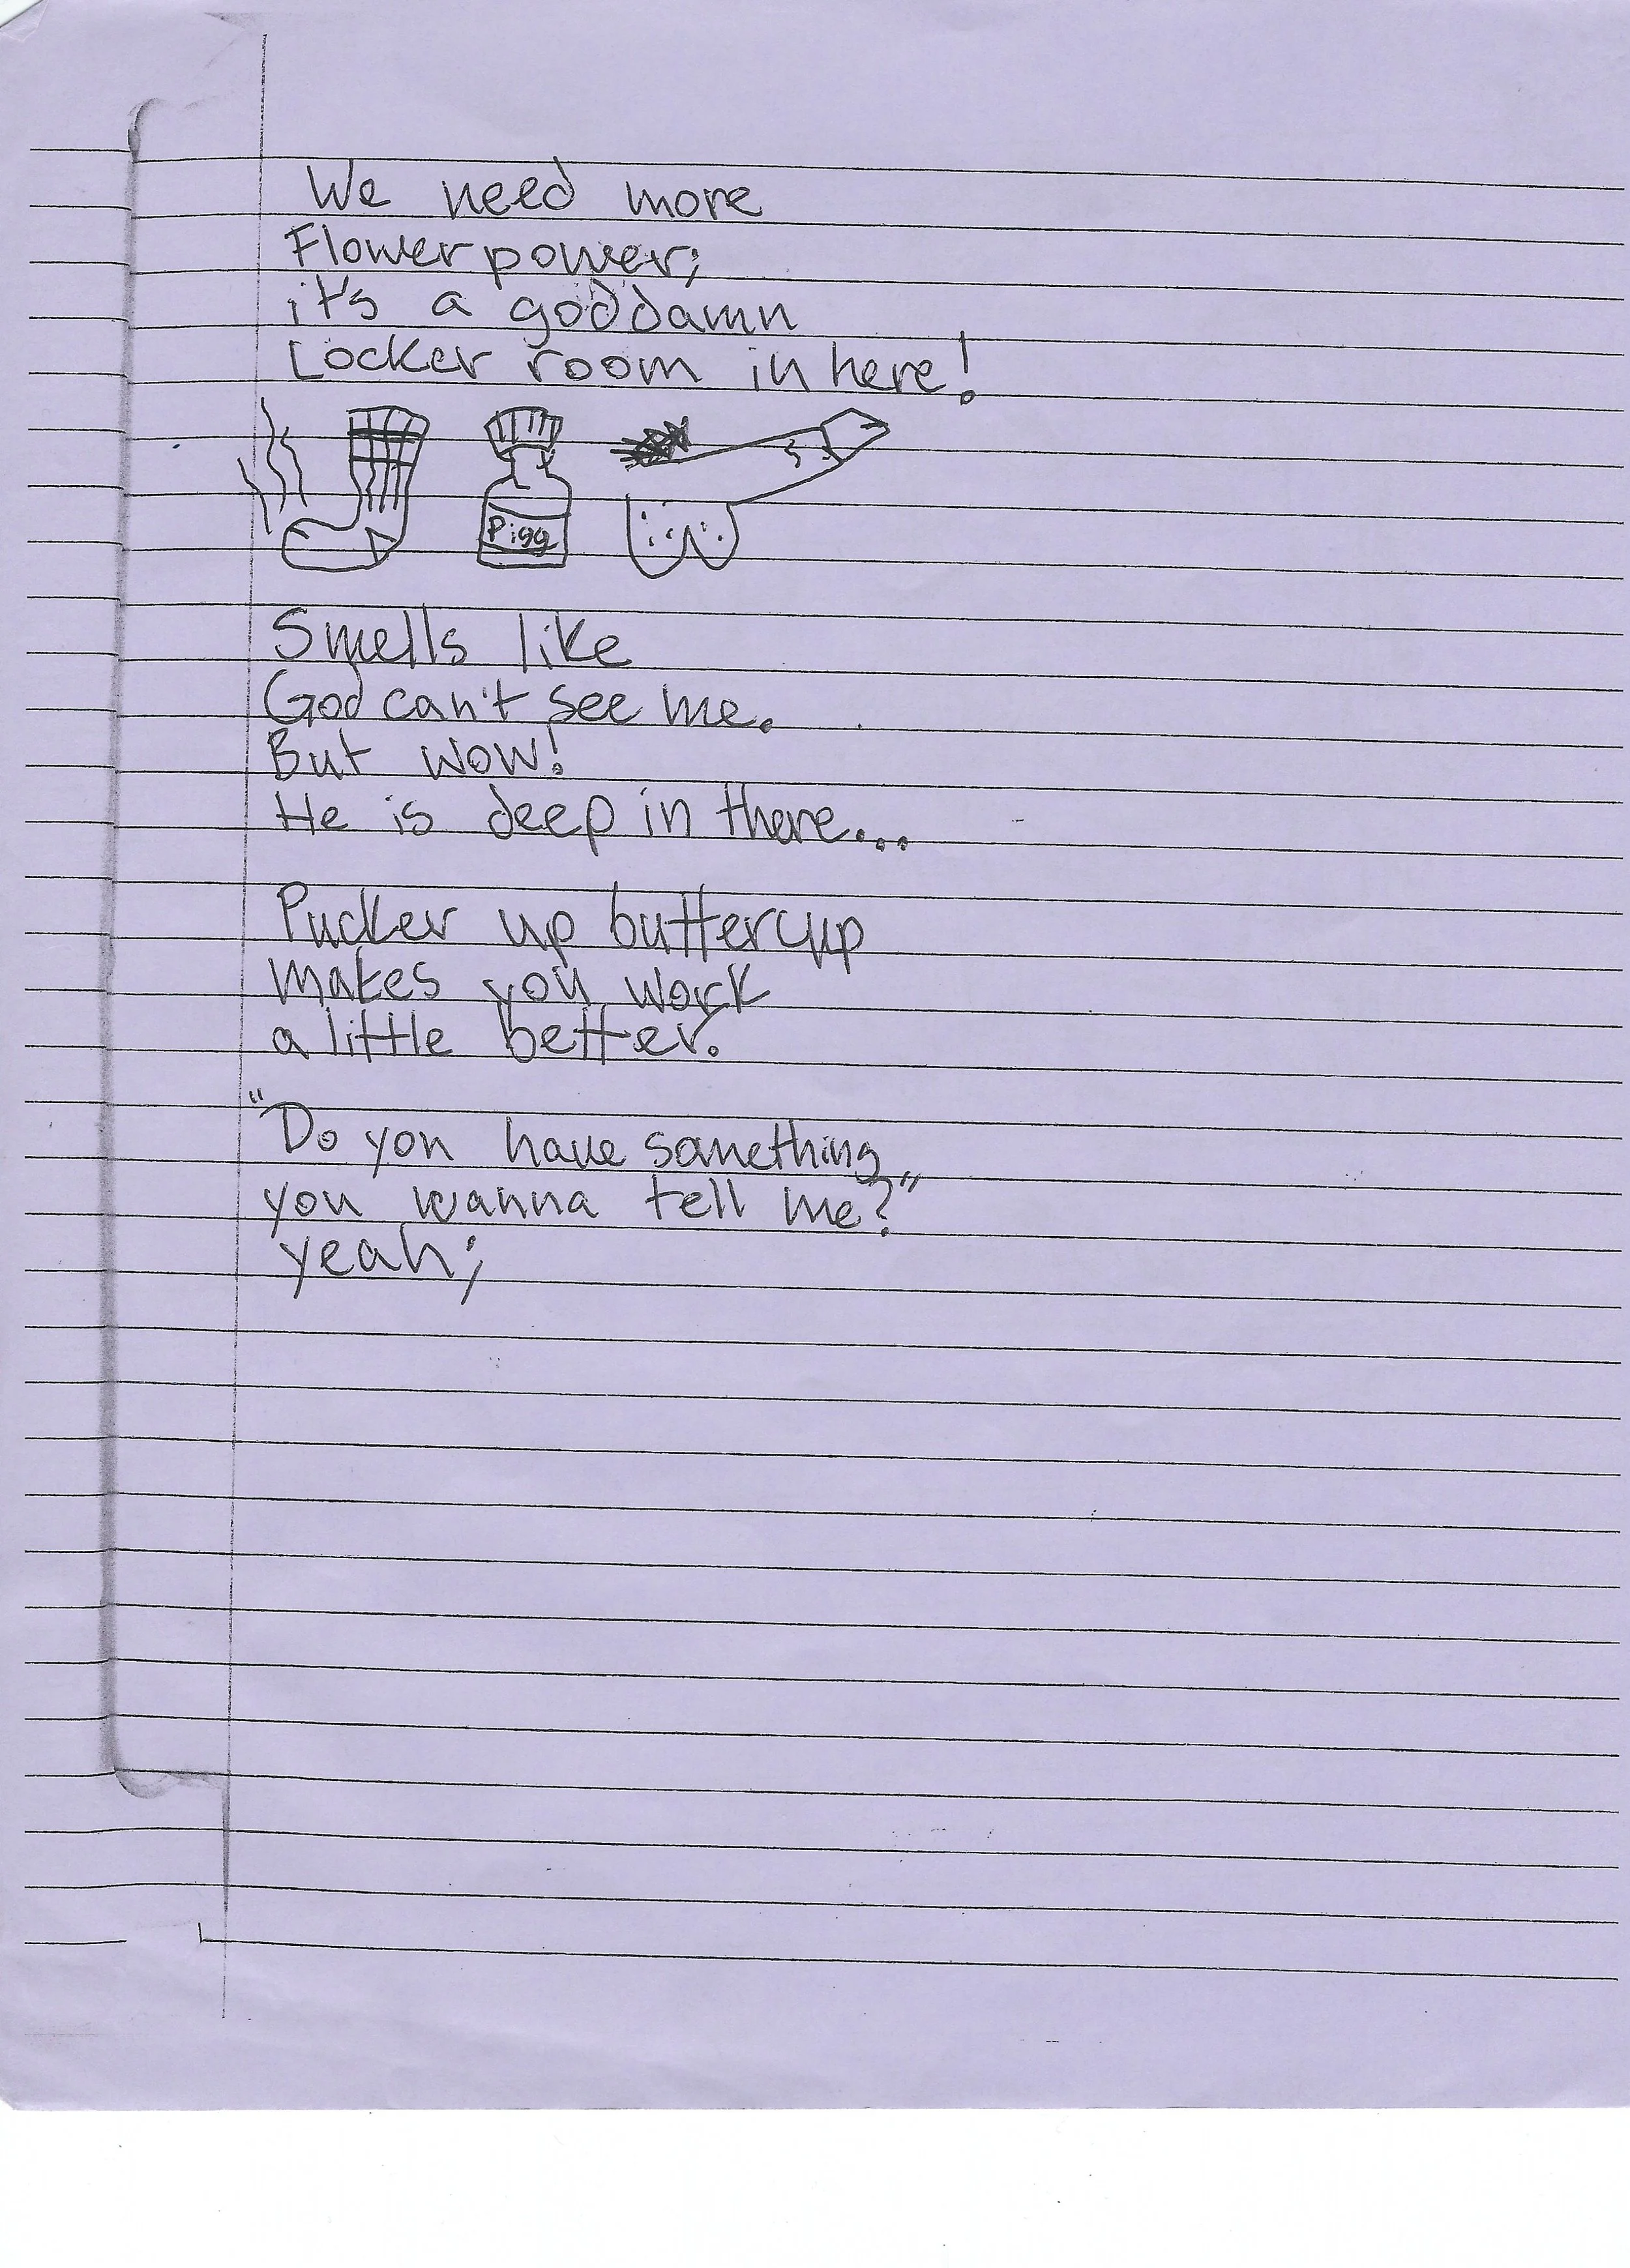 We need more
Flower power;
it's a goddamn
Locker room in here!
Pigg
Smells like
God can't see me.
But wow!
He is deep in there...
Pucker up buttercup
makes you work
a little better.
"Do you have something
you wanna tell me?"
yeah;